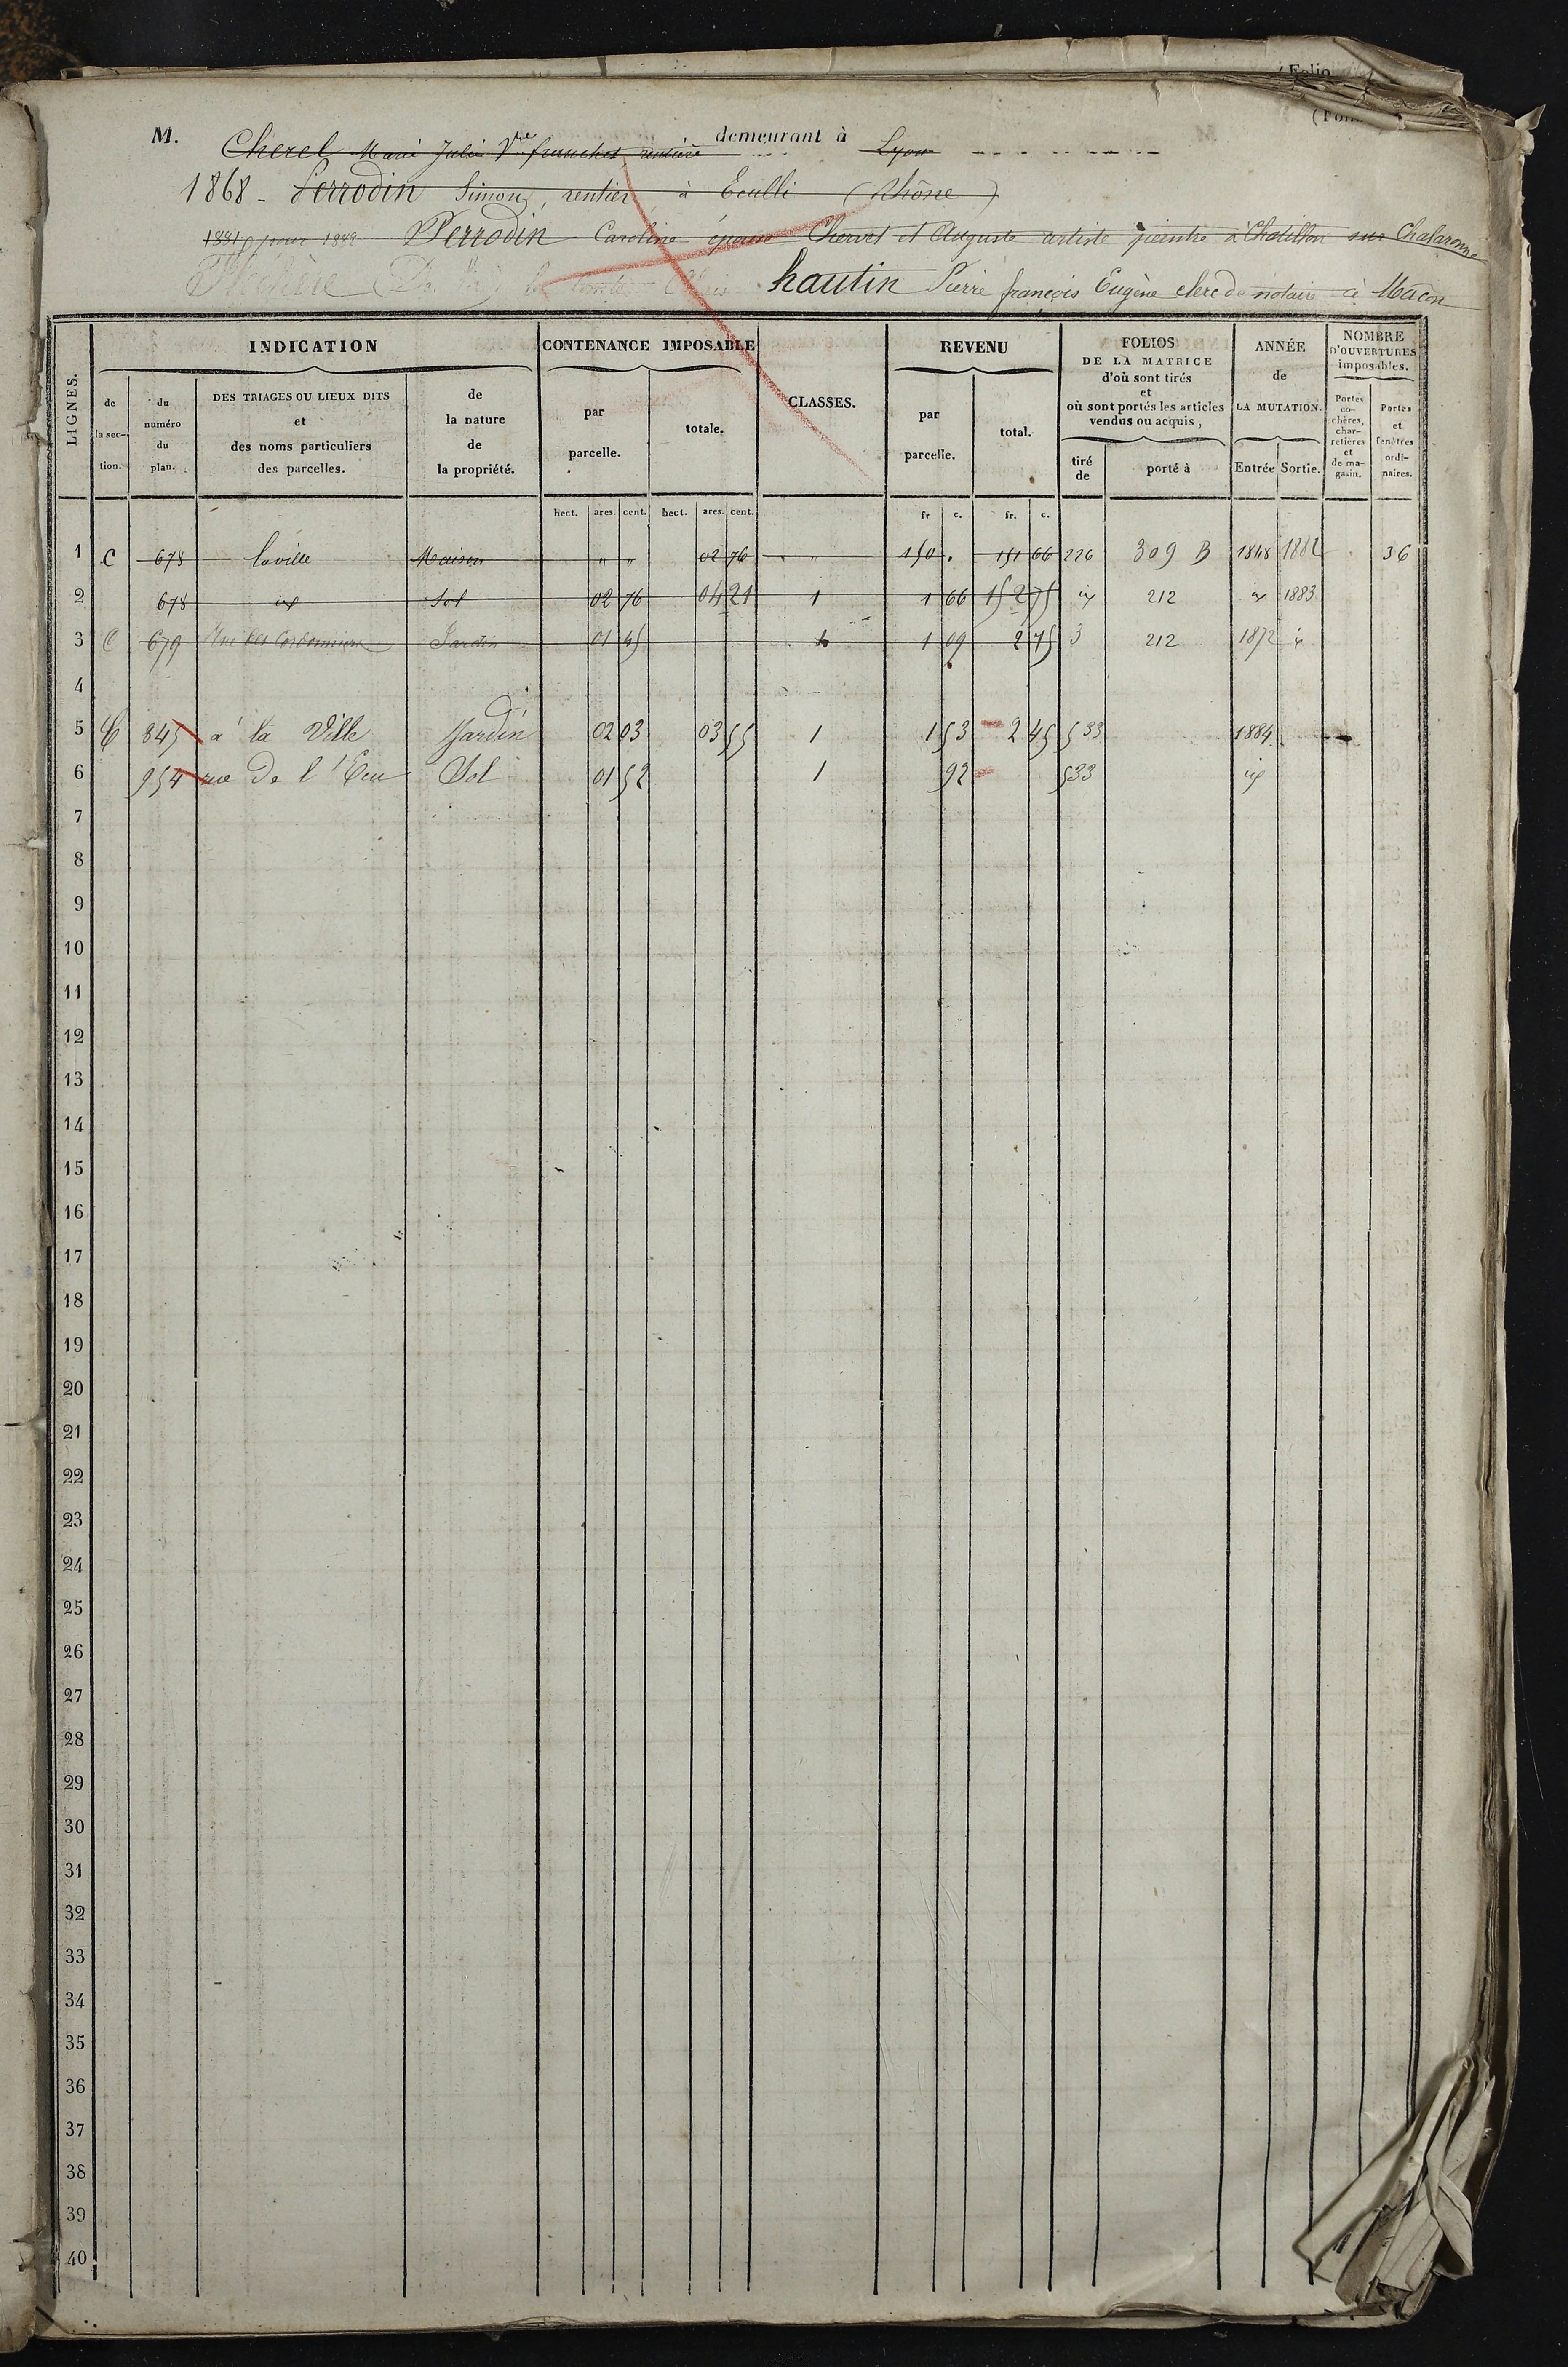 ( Folio
( Folio
M. Cherel Marie Julie Vve franchet, rentière demeurant à Lyon
1868 - Perrodin Simon, rentier, à Eculli (Rhône)
pour Perrodin Caroline épouse Chervet et Auguste artiste peintre à Chatillon sur Chalaronne
hautin Pierre françois Eugène clerc de notaire à Mâcon
LIGNES. INDICATION CONTENANCE IMPOSABLE CLASSES. REVENU FOLIOS DE LA MATRICE d'où sont tirés et où sont portés les articles vendus ou acquis, ANNÉE de LA MUTATION. NOMBRE D'OUVERTURES imposables.
de la section. du numéro du plan. DES TRIAGES OU LIEUX DITS et des noms particuliers des parcelles. de la nature de la propriété. par parcelle. totale. par parcelle. total. tiré de porté à Entrée Sortie. Portes cochères, charretières et de magasin. Portes et fenêtres ordinaires.
hect. ares. cent. hect. ares. cent. fr. c. fr. c.
1 C 678 la ville Maison " " 02 76 " " 150 . 151 66 226 309 B 1868 1882 36
2 678 id Sol 02 76 04 21 1 1 66 152 75 id 212 id 1883
3 C 679 Jardin 01 45 1 09 2 75 3 212 1872 id
4
5 C 845 à la Ville Jardin 02 03 03 55 1 1 53 2 45 533 1884
6 954 rue De l'Ecu Sol 01 52 1 92 533 id
7
8
9
10
11
12
13
14
15
16
17
18
19
20
21
22
23
24
25
26
27
28
29
30
31
32
33
34
35
36
37
38
39
40